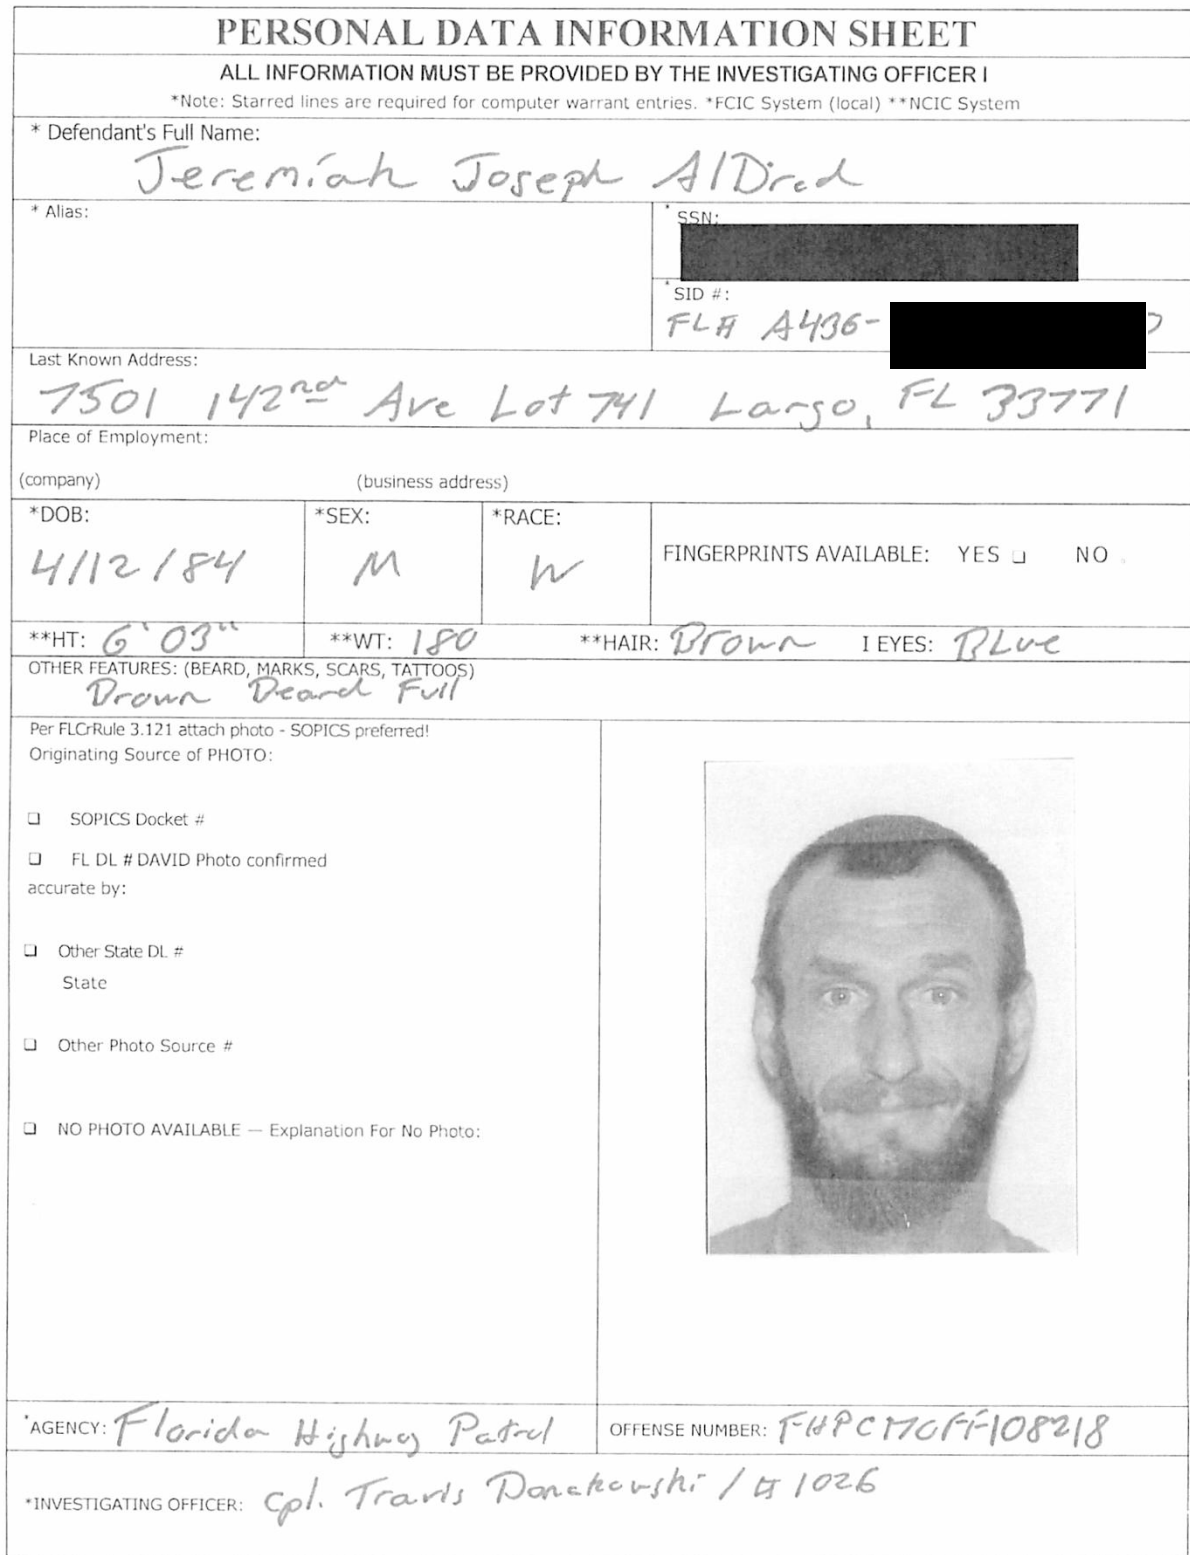 PERSONAL DATA INFORMATION SHEET
ALL INFORMATION MUST BE PROVIDED BY THE INVESTIGATING OFFICER I
*Note: Starred lines are required for computer warrant entries. *FCIC System (local) **NCIC System
* Defendant's Full Name:
Jeremiah Joseph AlDred
* Alias:
* SSN:
* SID #:
FL# A436-
Last Known Address:
7501 142nd Ave Lot 741 Largo, FL 33771
Place of Employment:
(company) (business address)
*DOB: *SEX: *RACE:
4/12/84 M W
FINGERPRINTS AVAILABLE: YES ❑ NO
**HT: 6' 03" **WT: 180 **HAIR: Brown I EYES: BLue
OTHER FEATURES: (BEARD, MARKS, SCARS, TATTOOS)
Brown Beard Full
Per FLCrRule 3.121 attach photo - SOPICS preferred!
Originating Source of PHOTO:
❑ SOPICS Docket #
❑ FL DL # DAVID Photo confirmed
accurate by:
❑ Other State DL #
State
❑ Other Photo Source #
❑ NO PHOTO AVAILABLE — Explanation For No Photo:
*AGENCY: Florida Highway Patrol OFFENSE NUMBER:
*INVESTIGATING OFFICER: Cpl. Travis / #1026